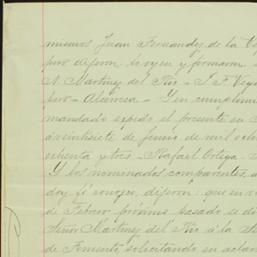 mismos Juan Fernandez de la
pero dijeron lo oyen y firmaron
N. Martinez del Rio - J. F.
pero - Alcerreca - Y en cumplim
mandado expido el presente en
á veintisiete de Junio de mil och
ochenta y tres - Rafael Ortega -
Y los nominados comparentes, á
doy fé conozco, dijeron: que en
de Febrero próximo pasado se di
Señor Martinez del Rio á la
de Fomento, solicitando en